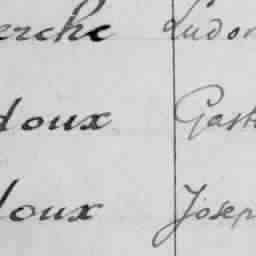 erche Ludo
doux Gast
doux Josep